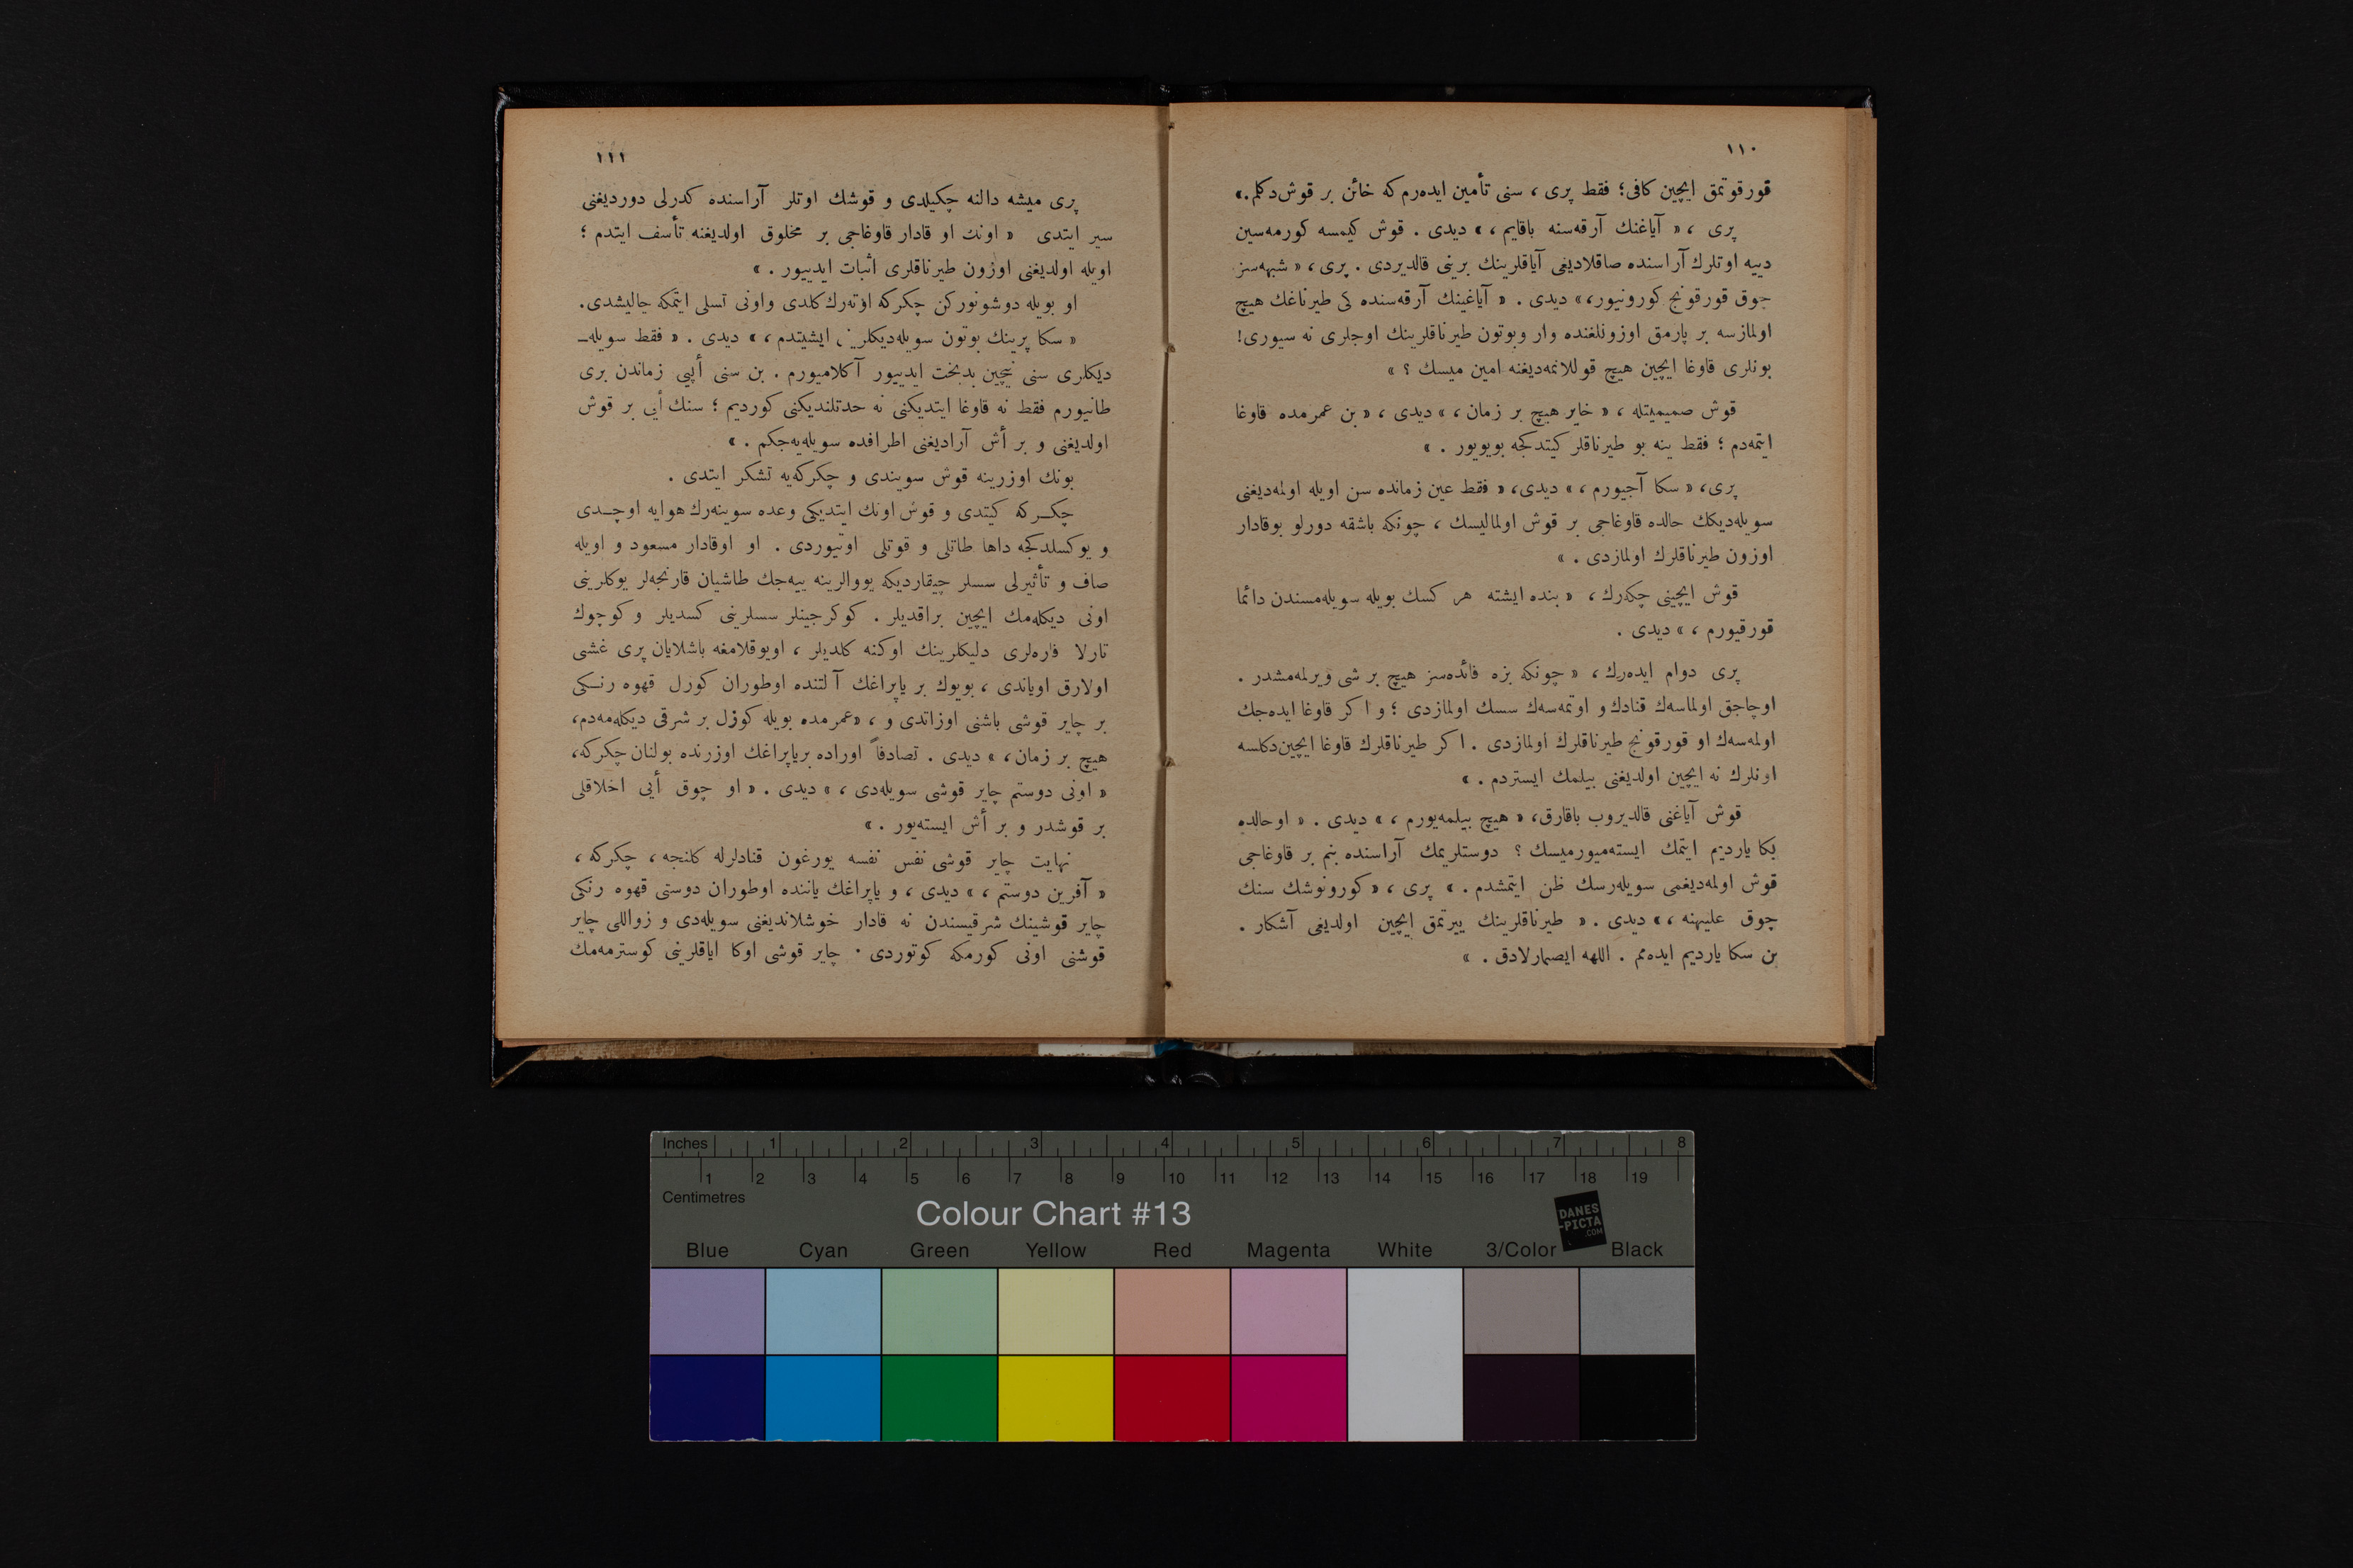 ١١٠
قورقوتمق ایچین کافی؛ فقط پری ، سنی تأمین ایده‌رم که خائن بر قوش دکلم.»
پری ، « آیاغنك آرقه‌سنه باقایم ، » دیدی . قوش کیمسه کورمه‌سین
دییه اوتلرك آراسنده صاقلادیغی آیاقلرینك برینی قالدیردی . پری ، « شبهه‌سز
چوق قورقونج کورونیور،» دیدی . « آیاغینك آرقه‌سنده کی طیرناغك هیچ
اولمازسه بر پارمق اوزونلغنده وار وبوتون طیرناقلرینك اوجلری نه سیوری!
بونلری قاوغا ایچین هیچ قوللانمه‌دیغنه امین میسك ؟ »
قوش صمیمیتله ، « خایر هیچ بر زمان ، » دیدی ، « بن عمرمده قاوغا
ایتمه‌دم ؛ فقط ینه بو طیرناقلر کیتدکجه بویویور . »
پری، « سکا آجیورم ، » دیدی، « فقط عین زمانده سن اویله اولمه‌دیغنی
سویله‌دیکك حالده قاوغاجی بر قوش اولمالیسك ، چونکه باشقه دورلو بوقادار
اوزون طیرناقلرك اولمازدی . »
قوش ایچینی چکه‌رك ، « بنده ایشته هر کسك بویله سویله‌مسندن دائما
قورقیورم ، » دیدی .
پری دوام ایده‌رك ، « چونکه بزه فائده‌سز هیچ بر شی ویرلمه‌مشدر .
اوچاجق اولماسه‌ك قنادك و اوتمه‌سه‌ك سسك اولمازدی ؛ و ا کر قاوغا ایده‌جك
اولمه‌سه‌ك او قورقونج طیرناقلرك اولمازدی . ا کر طیرناقلرك قاوغا ایچین‌دکلسه
اونلرك نه ایچین اولدیغنی بیلمك ایستردم . »
قوش آیاغنی قالدیروب باقارق، « هیچ بیلمه‌یورم ، » دیدی . « اوحالده
بکا یاردیم ایتمك ایسته‌میورمیسك ؟ دوستلریمك آراسنده بنم بر قاوغاجی
قوش اولمه‌دیغمی سویله‌رسك ظن ایتمشدم . » پری ، « کورونوشك سنك
چوق علیهنه ،» دیدی . « طیرناقلرینك ییرتمق ایچین اولدیغی آشکار .
بن سکا یاردیم ایده‌مم . اللهه ایصمارلادق . »
١١١
پری میشه دالنه چکیلدی و قوشك اوتلر آراسنده کدرلی دوردیغنی
سیر ایتدی « اونك او قادار قاوغاجی بر مخلوق اولدیغنه تأسف ایتدم ؛
اویله اولدیغنی اوزون طیرناقلری اثبات ایدییور . »
او بویله دوشونورکن چکرکه اؤته‌رك کلدی واونی تسلی ایتمکه چالیشدی.
« سکا پرینك بوتون سویله‌دیکلرینی ایشیتدم ، » دیدی . « فقط سویله‌ـ
دیکلری سنی نیچین بدبخت ایدییور آکلامیورم . بن سنی أییی زماندن بری
طانیورم فقط نه قاوغا ایتدیکنی نه حدتلندیکنی کوردیم ؛ سنك أیی بر قوش
اولدیغنی و بر أش آرادیغنی اطرافده سویله‌یه‌جکم . »
بونك اوزرینه قوش سویندی و چکرکه‌یه تشکر ایتدی .
چکـرکه کیتدی و قوش اونك ایتدیکی وعده سوینه‌رك هوایه اوچـدی
و یوکسلدکجه داها طاتلی و قوتلی اوتیوردی . او اوقادار مسعود و اویله
صاف و تأثیرلی سسلر چیقاردیکه یووالرینه ییه‌جك طاشیان قارنجه‌لر یوکلرینی
اونی دیکله‌مك ایچین براقدیلر . کوکرجینلر سسلرینی کسدیلر و کوچوك
تارلا فاره‌لری دلیکلرینك اوکنه کلدیلر ، اویوقلامغه باشلایان پری غشی
اولارق اویاندی ، بویوك بر یاپراغك آلتنده اوطوران کوزل قهوه رنـکی
بر چایر قوشی باشنی اوزاتدی و ، «عمرمده بویله کوزل بر شرقی دیکله‌مه‌دم،
هیچ بر زمان، » دیدی . تصادفاً اوراده بریاپراغك اوزرنده بولنان چکرکه،
« اونی دوستم چایر قوشی سویله‌دی ، » دیدی . « او چوق أیی اخلاقلی
بر قوشدر و بر أش ایسته‌یور . »
نهایت چایر قوشی نفس نفسه یورغون قنادلرله کلنجه ، چکرکه ،
« آفرین دوستم ، » دیدی ، و یاپراغك یاننده اوطوران دوستی قهوه رنکی
چایر قوشینك شرقیسندن نه قادار خوشلاندیغنی سویله‌دی و زواللی چایر
قوشنی اونی کورمکه کوتوردی . چایر قوشی اوکا ایاقلرینی کوسترمه‌مك
Inches 1 2 3 4 5 6 7 8
1 2 3 4 5 6 7 8 9 10 11 12 13 14 15 16 17 18 19
Centimetres
Colour Chart #13
DANES
-PICTA
.COM
Blue Cyan Green Yellow Red Magenta White 3/Color Black